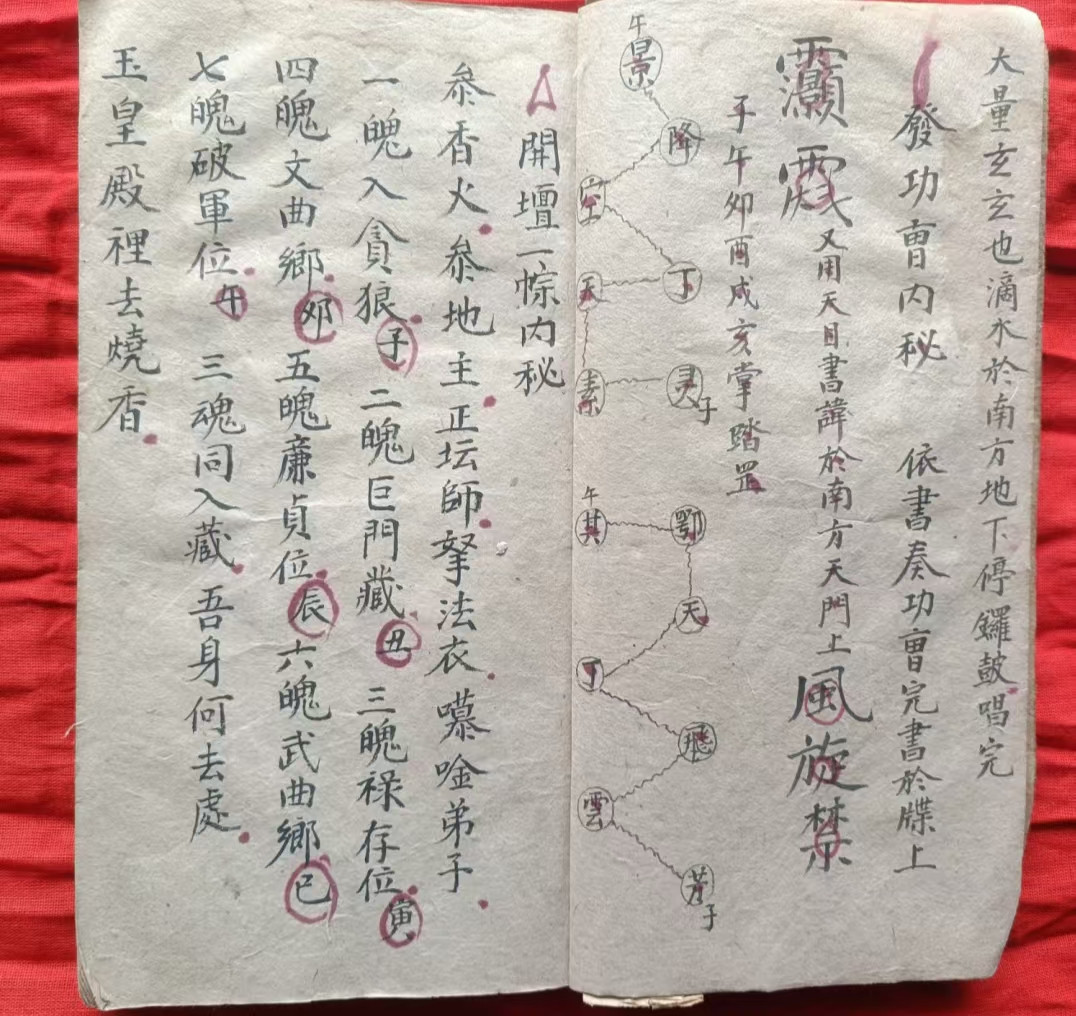 大量玄玄也滴水於南方地下停鑼皷唱完
發功曺内秘　依書奏功曺完書於牒上
灝　又用天目書諱於南方天門上風旋禁
子午卯酉戌亥掌踏罡
午景
降
空
丁
天
素
灵子
午其
鄂
天
丁
飛
雲
芳子
開壇一悰内秘
叅香火叅地主正坛師拏法衣嚎唫弟子
一魄入貪狼子二魄巨門藏丑三魄禄存位寅
四魄文曲鄉卯五魄廉貞位辰六魄武曲鄉巳
七魄破軍位午三魂同入藏吾身何去處
玉皇殿裡去燒香